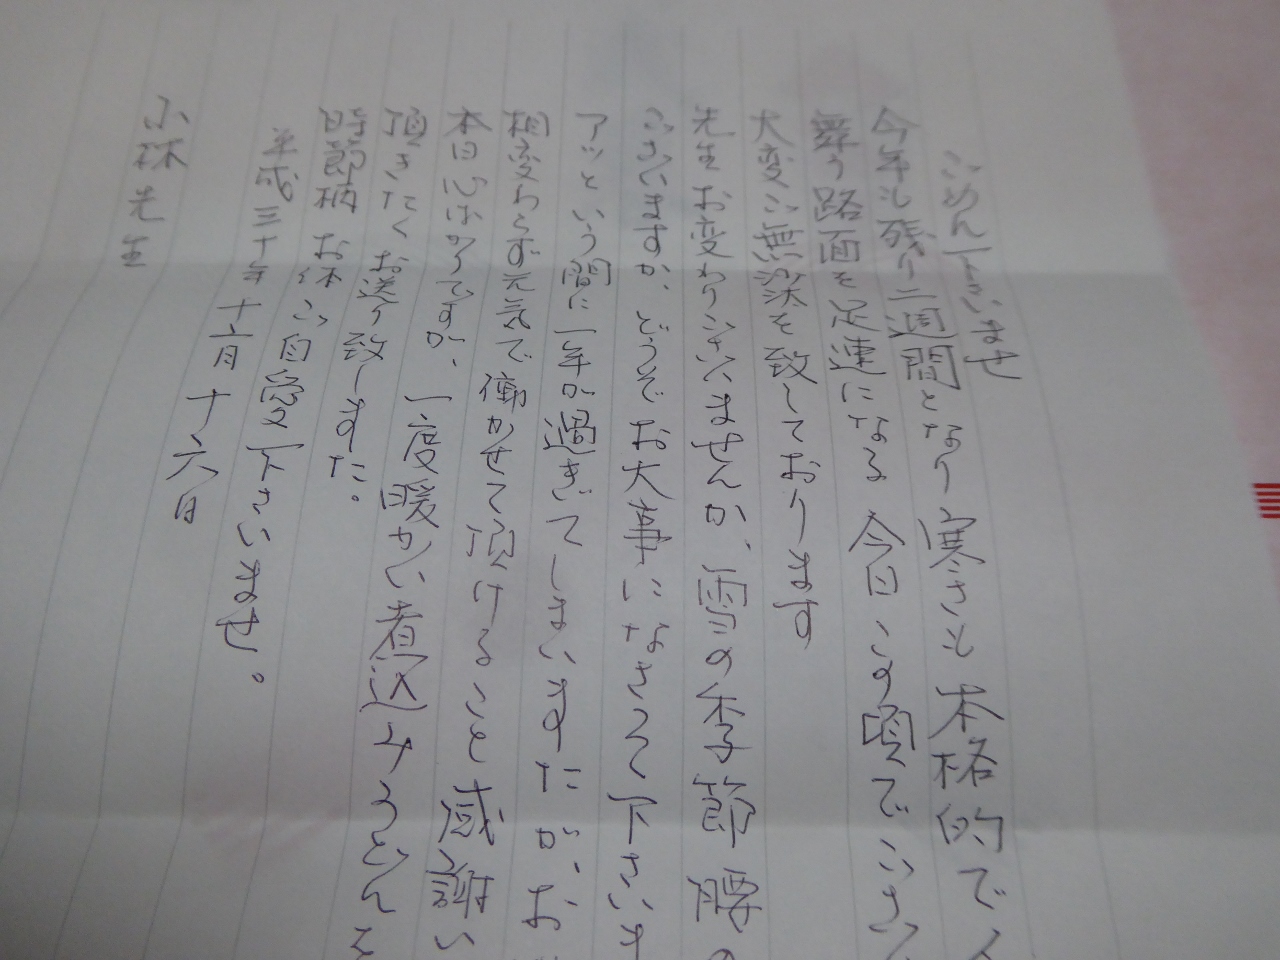 ごめん下さいませ
今年も残り二週間となり寒さも本格的で
舞う路面を足速になる今日この頃でござい
大変ご無沙汰を致しております
先生お変わりございませんか、雪の季節腰の
ございますか、どうぞお大事になさって下さいま
アッという間に一年が過ぎてしまいますたが、お
相変わらず元気で働かせて頂けること感謝い
本日心ばかりですが、一度暖かい煮込みうどんを
頂きたくお送り致しますた。
時節柄お体ご自愛下さいませ。
平成三十年十二月十六日
小林先生